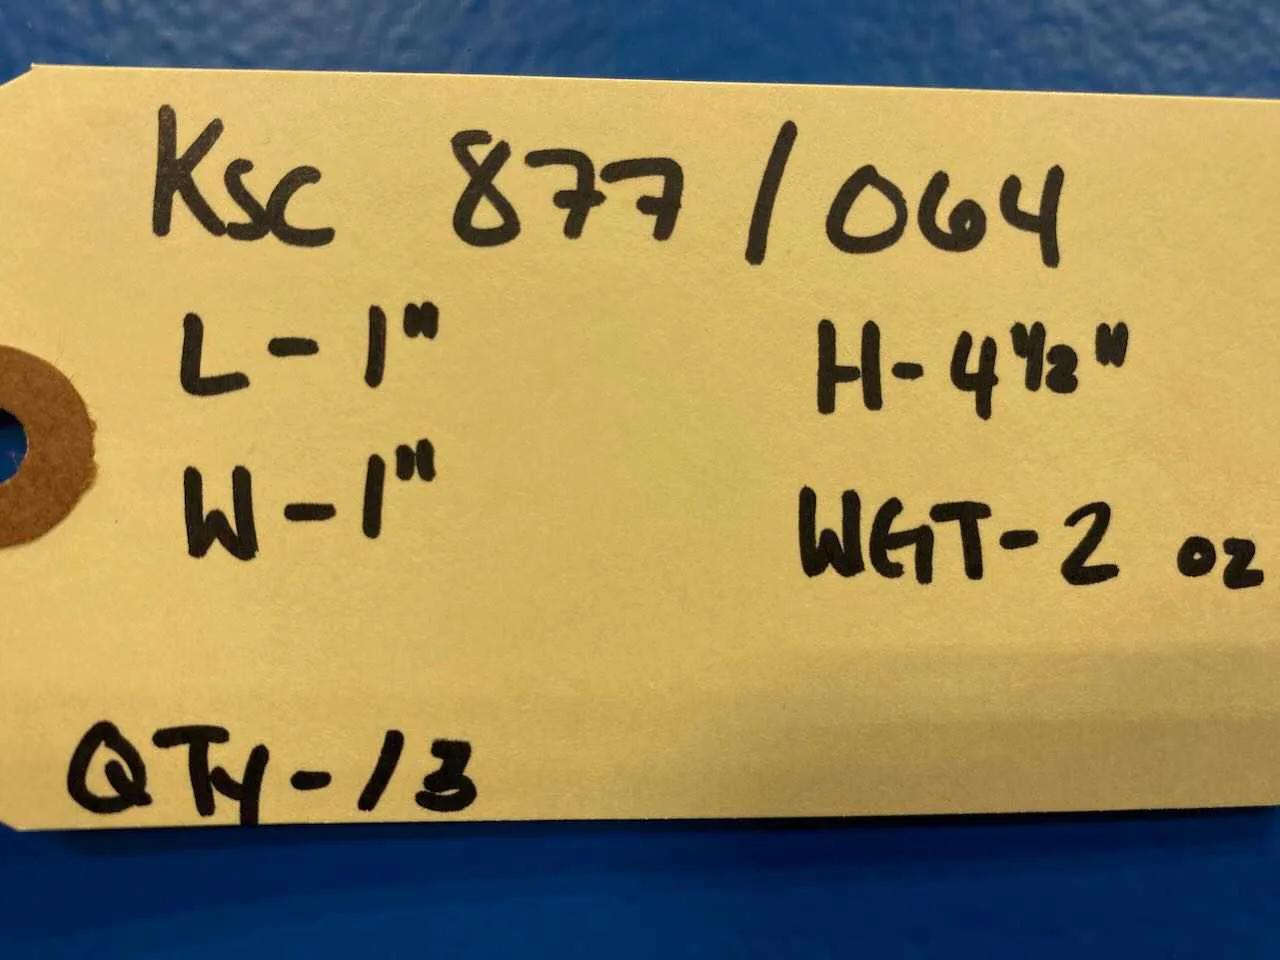 Ksc 877/064
L-1" H-4 1/2"
W-1" WGT-2 oz
QTy-13